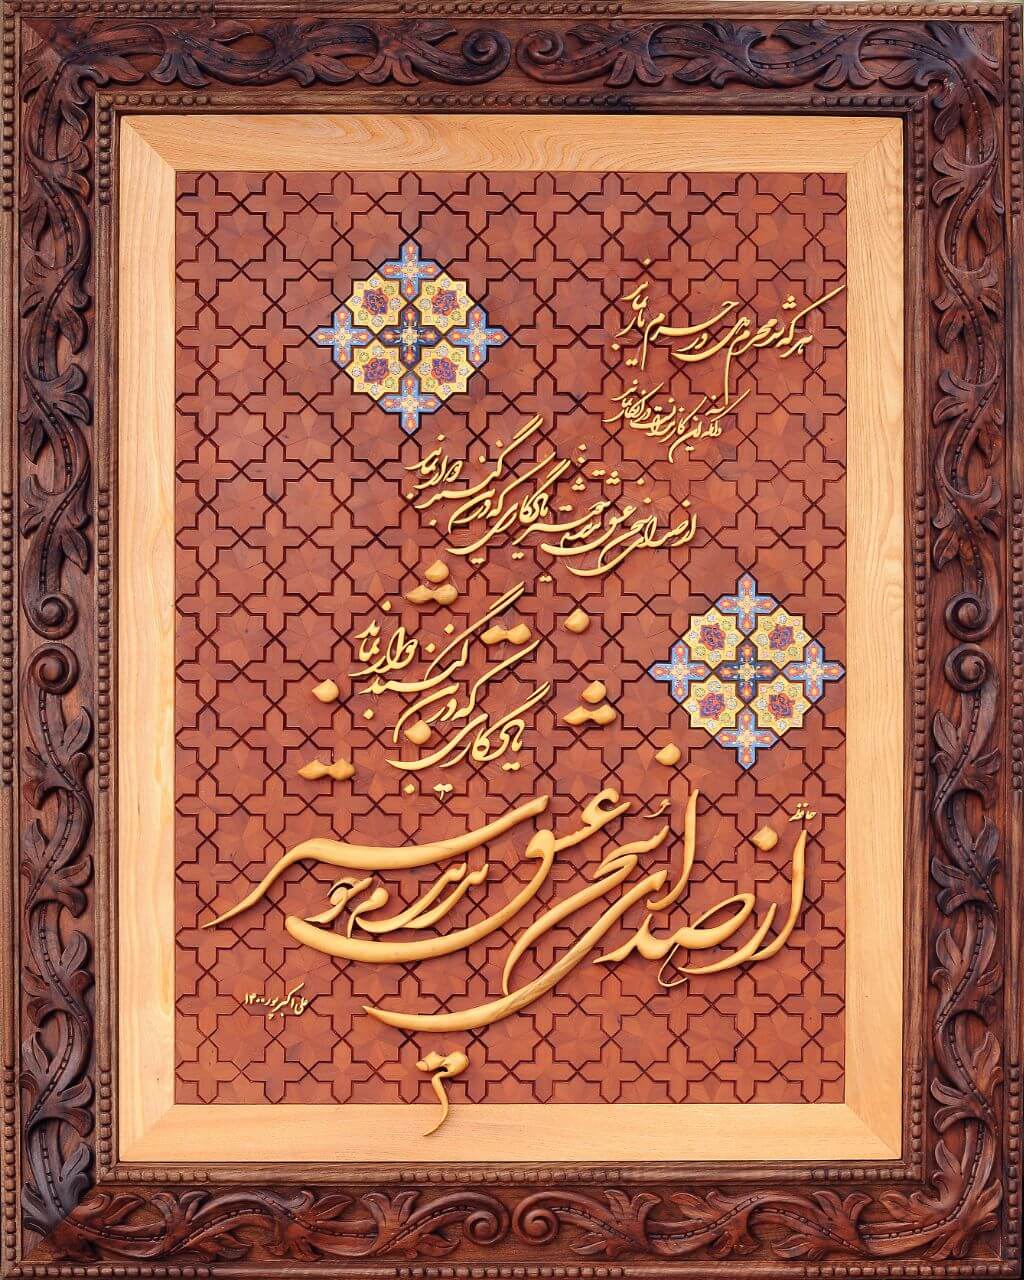 هر که شد محرم دل در حرم یار بماند
وانکه این کار ندانست در انکار بماند
از صدای سخن عشق ندیدم خوشتر یادگاری که در این گنبد دوار بماند
یادگاری که در این گنبد دوار بماند
حافظ
از صدای سخن عشق ندیدم خوشتر
علی اکبرپور ۱۴۰۰